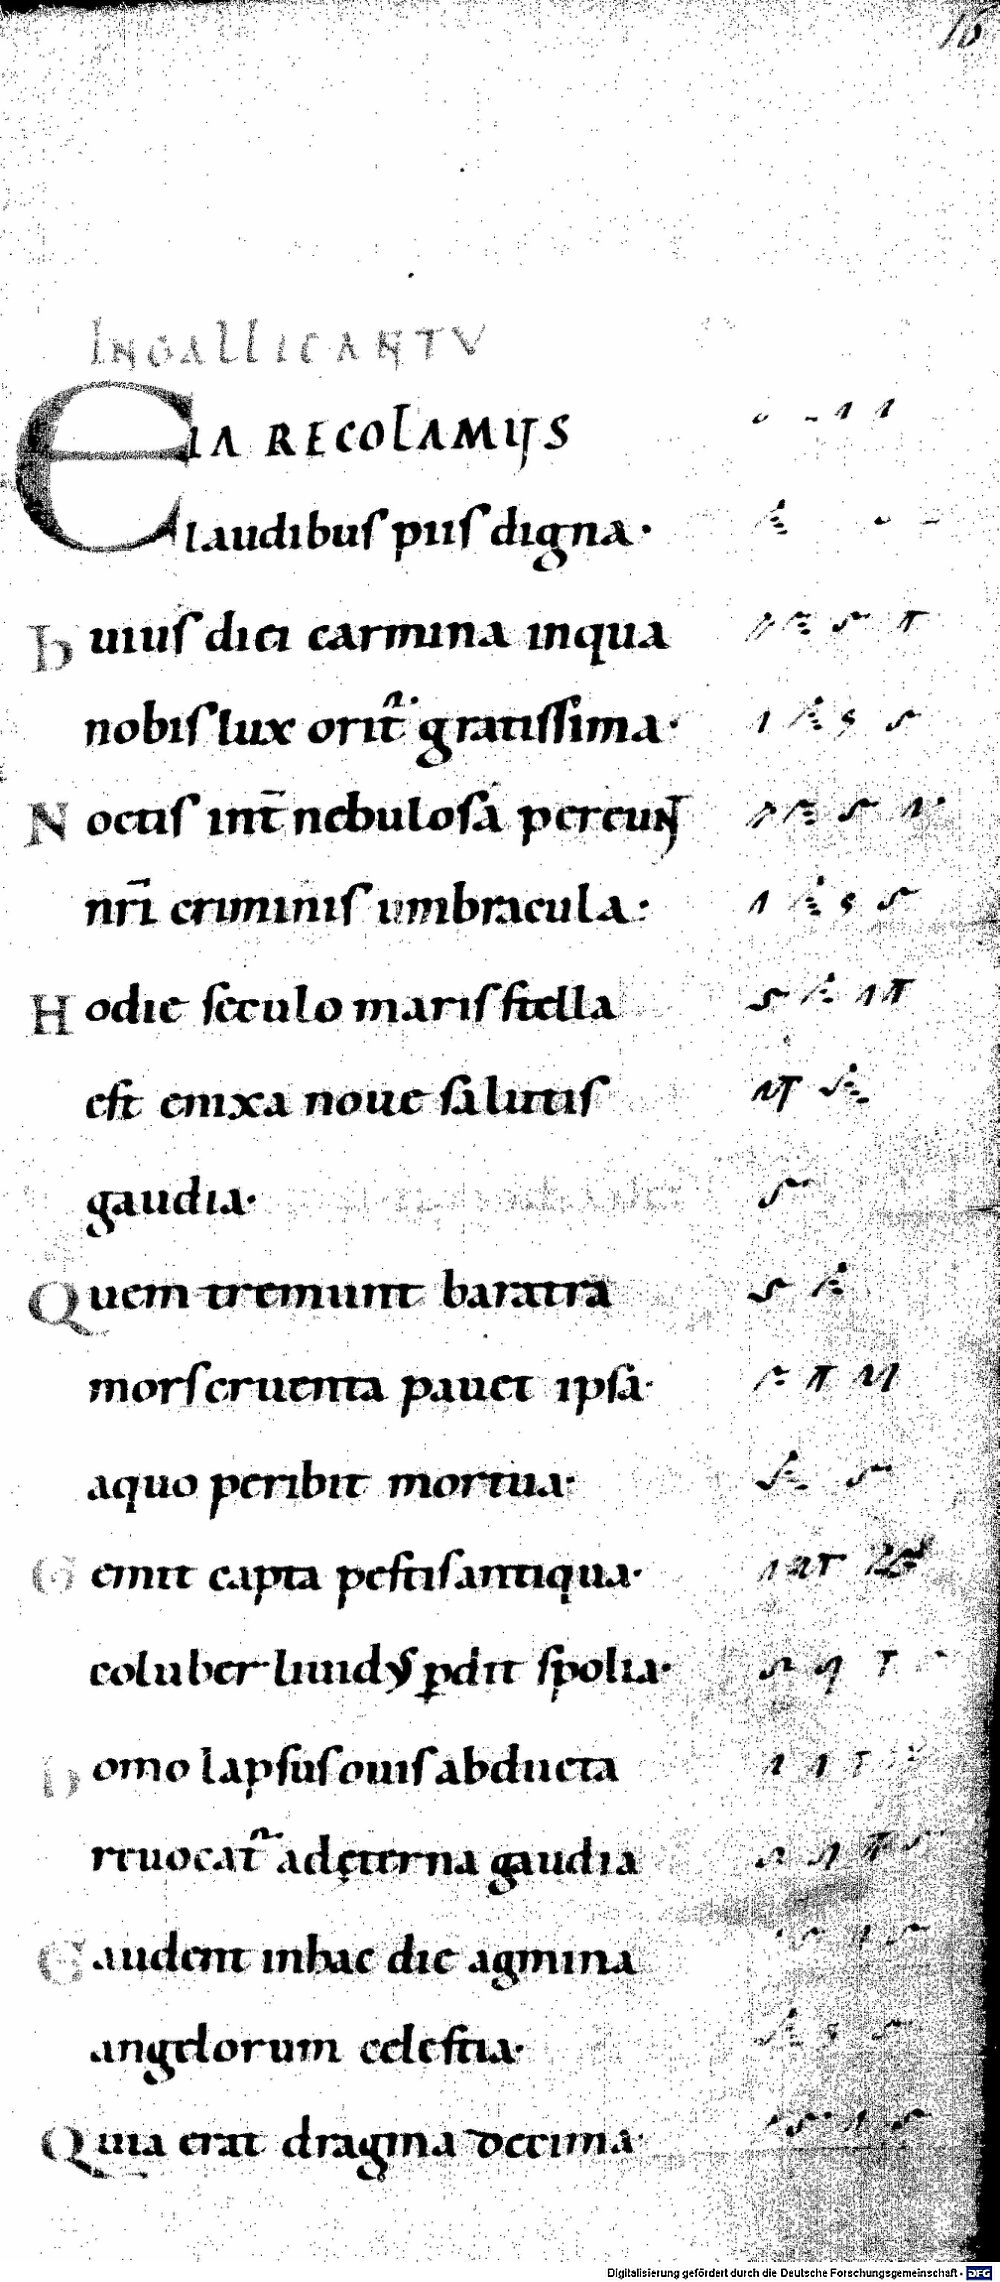 16
INGALLICANTV
EIA RECOLAMUS
laudibus piis digna·
huius diei carmina inqua
nobis lux orit᷑· gratissima·
Noctis int̄ nebulosa pereunt
nr̄i criminis umbracula·
Hodie seculo maris stella
est enixa noue salutis
gaudia·
Quem tremunt baratra
mors cruenta pauet ipsa·
aquo peribit mortua·
Gemit capta pestis antiqua·
coluber liuidus ꝑdit spolia·
homo lapsus ouis abducta
reuocat᷑ adęterna gaudia
Gaudent inhac die agmina
angelorum celestia·
Quia erat dragma decima·
Digitalisierung gefördert durch die Deutsche Forschungsgemeinschaft - DFG